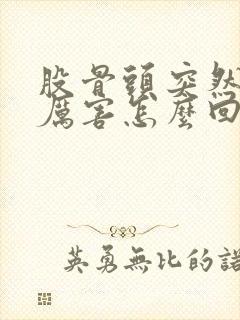 股骨頭突然
厲害怎麼回
英勇無比的諾